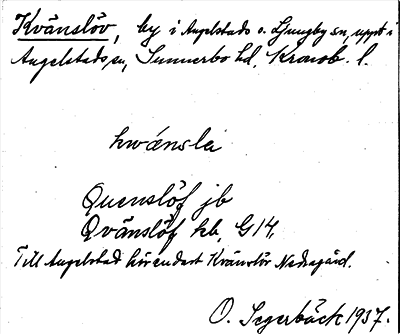 Kvänslöv, by i Angelstads o. Ljungby sn, uppt. i
Angelstads sn, Sunnerbo hd, Kronob. l.
kwánsla
Quenslöf jb
Qvänslöf kb, G14.
Till Angelstad hör endast Kvänslöv Nedragård.
O. Segerbäck 1937.